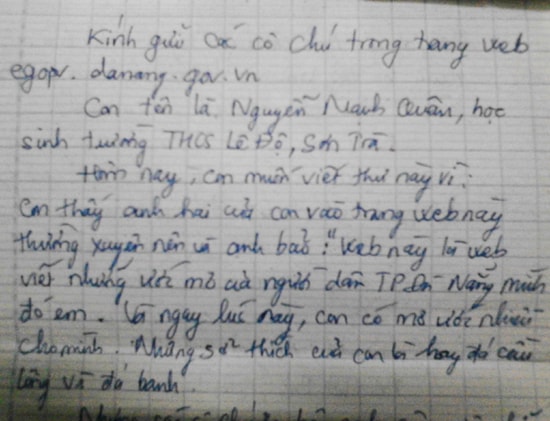 Kính gửi các cô chú trong trang web
egov. danang. gov. vn
Con tên là Nguyễn Mạnh Quân, học
sinh trường THCS Lê Độ, Sơn Trà.
Hôm nay, con muốn viết thư này vì:
Con thấy anh hai của con vào trang web này
thường xuyên nên và anh bảo: "Web này là web
viết những ước mơ của người dân TP. Đà Nẵng mình
đó em. Và ngay lúc này, con có mơ ước
cho mình. Những sở thích của con là hay đá cầu
lông và đá banh.